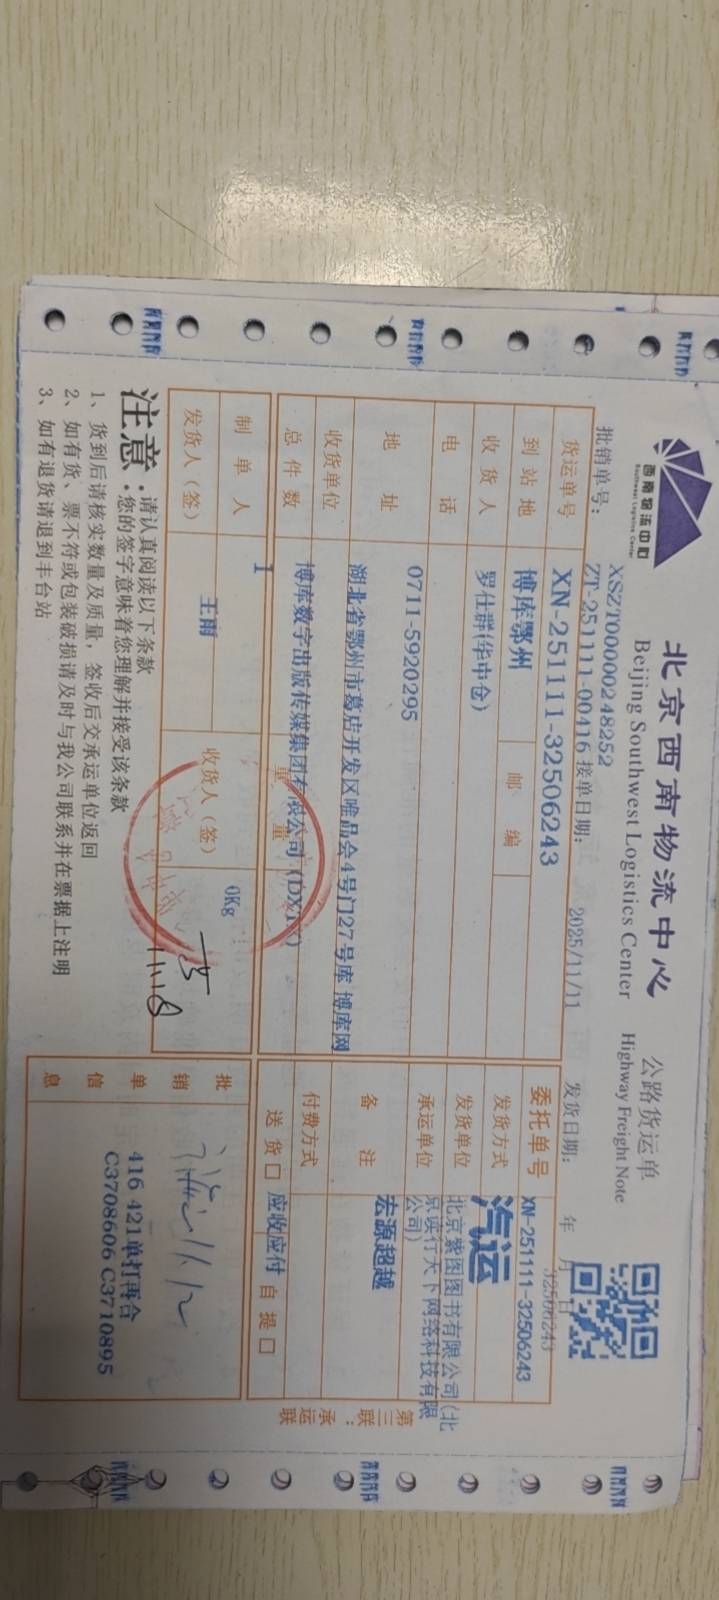 西南物流中心
Southwest Logistics Center
北京西南物流中心
Beijing Southwest Logistics Center
公路货运单
Highway Freight Note
批销单号：
XSZT00000248252
ZT-251111-00416
接单日期：
2025/11/11
发货日期：
年 月 日
32506243
货运单号 XN-251111-32506243
委托单号 XN-251111-32506243
到站地 博库鄂州
邮编
发货方式 汽运
收货人 罗仕群(华中仓)
发货单位 北京紫图图书有限公司(北京读行天下网络科技有限公司)
电话 0711-5920295
承运单位 宏源超越
地址 湖北省鄂州市葛店开发区唯品会4号门27号库 博库网
备注
收货单位 博库数字出版传媒集团有限公司
付费方式 应收应付
总件数 1
重量 0Kg
送货口
自提口
制单人 王雨
发货人（签）
收货人（签）
批销单信息
416 421单打再合
C3708606 C3710895
注意：
请认真阅读以下条款
您的签字意味着您理解并接受该条款
1、货到后请核实数量及质量，签收后交承运单位返回
2、如有货、票不符或包装破损请及时与我公司联系并在票据上注明
3、如有退货请退到丰台站
第三联：承运联